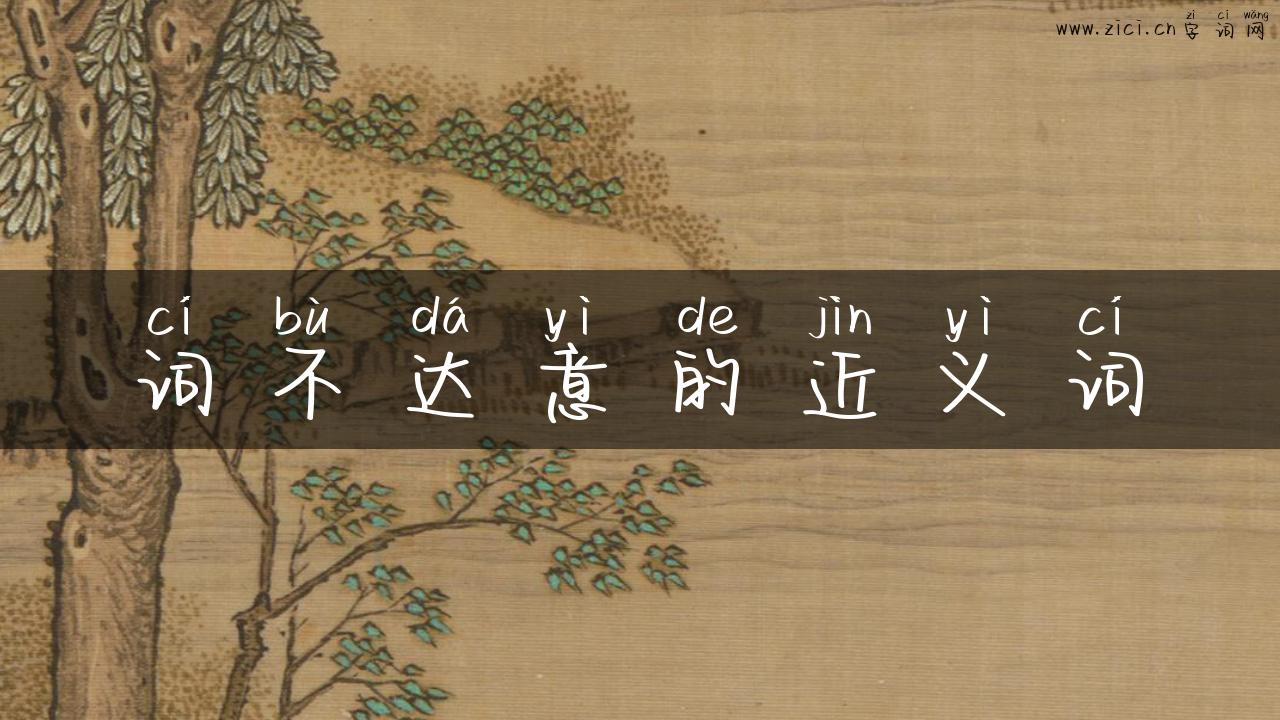 zì cí wǎng
www.zici.cn 字词网
cí bù dá yì de jìn yì cí
词不达意的近义词